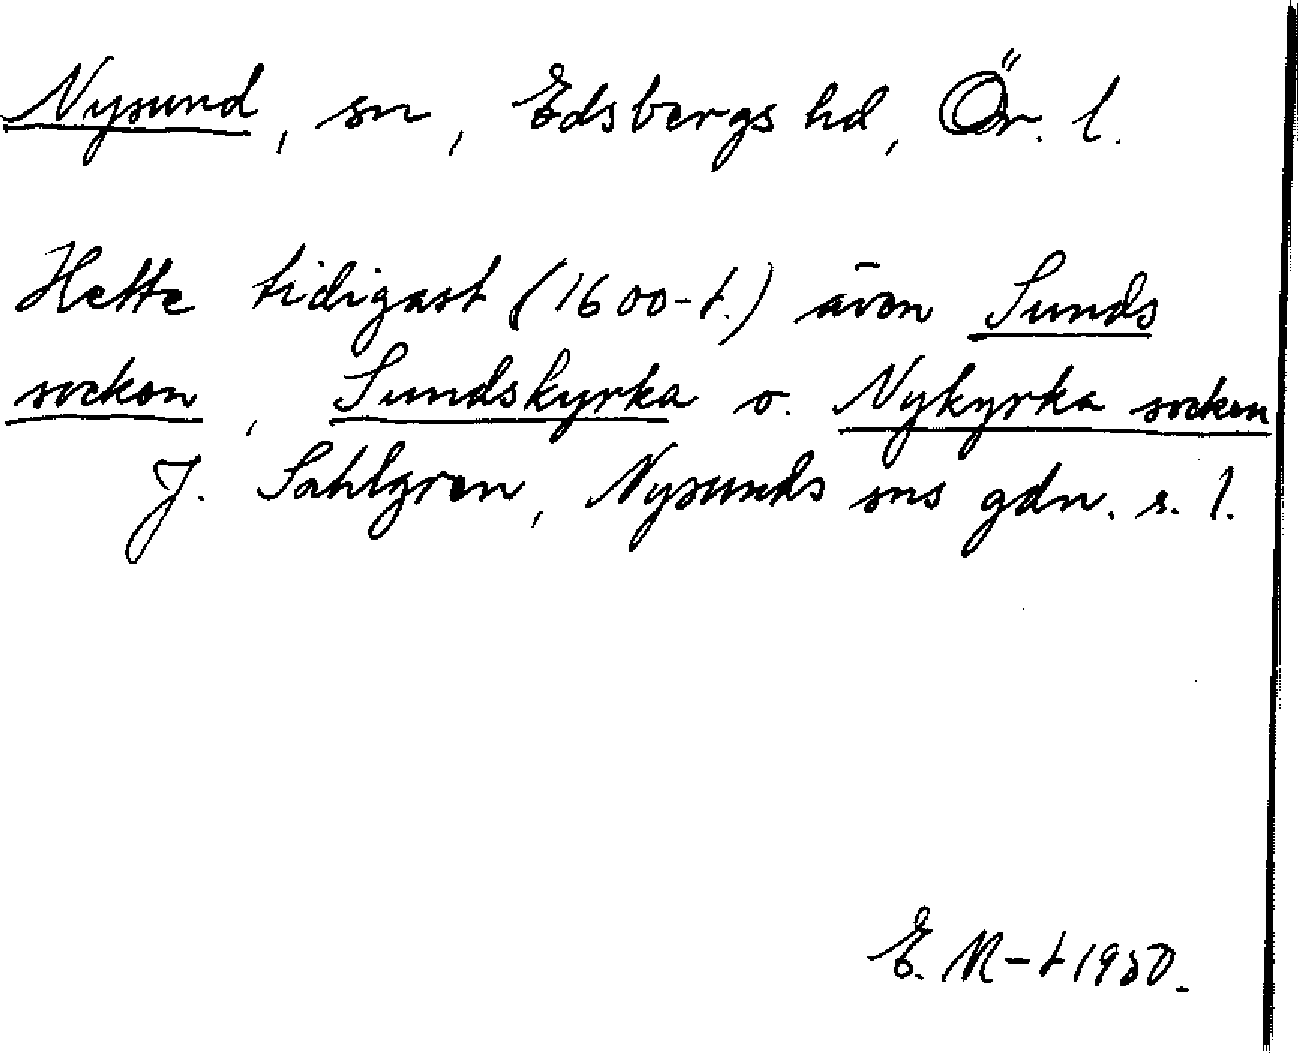 Nysund, sn, Edsbergs hd, Ör. l.
Hette tidigast (1600-t.) även Sunds
socken, Sundskyrka o. Nykyrka socken
J. Sahlgren, Nysunds sns gdn. s. 1.
E. N-t 1950.